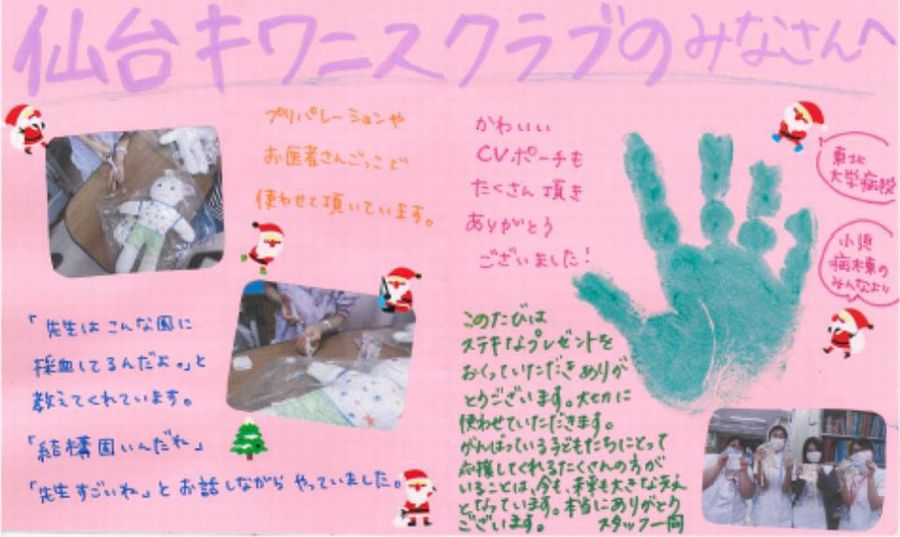 仙台キワニスクラブのみなさんへ
プリパレーションや
お医者さんごっこで
使わせて頂いています。
かわいい
CVポーチも
たくさん頂き
ありがとう
ございました!
東北
大学病院
小児
病棟の
みんなより
「先生はこんな風に
採血してるんだよ。」と
教えてくれています。
「結構固いんだね」
「先生すごいね」とお話しながらやっていました。
このたびは
ステキなプレゼントを
おくっていただきありが
とうございます。大切に
使わせていただきます。
がんばっている子どもたちにとって
応援してくれるたくさんの方が
いることは、今も、未来も大きな支え
となっています。本当にありがとう
ございます。 スタッフ一同